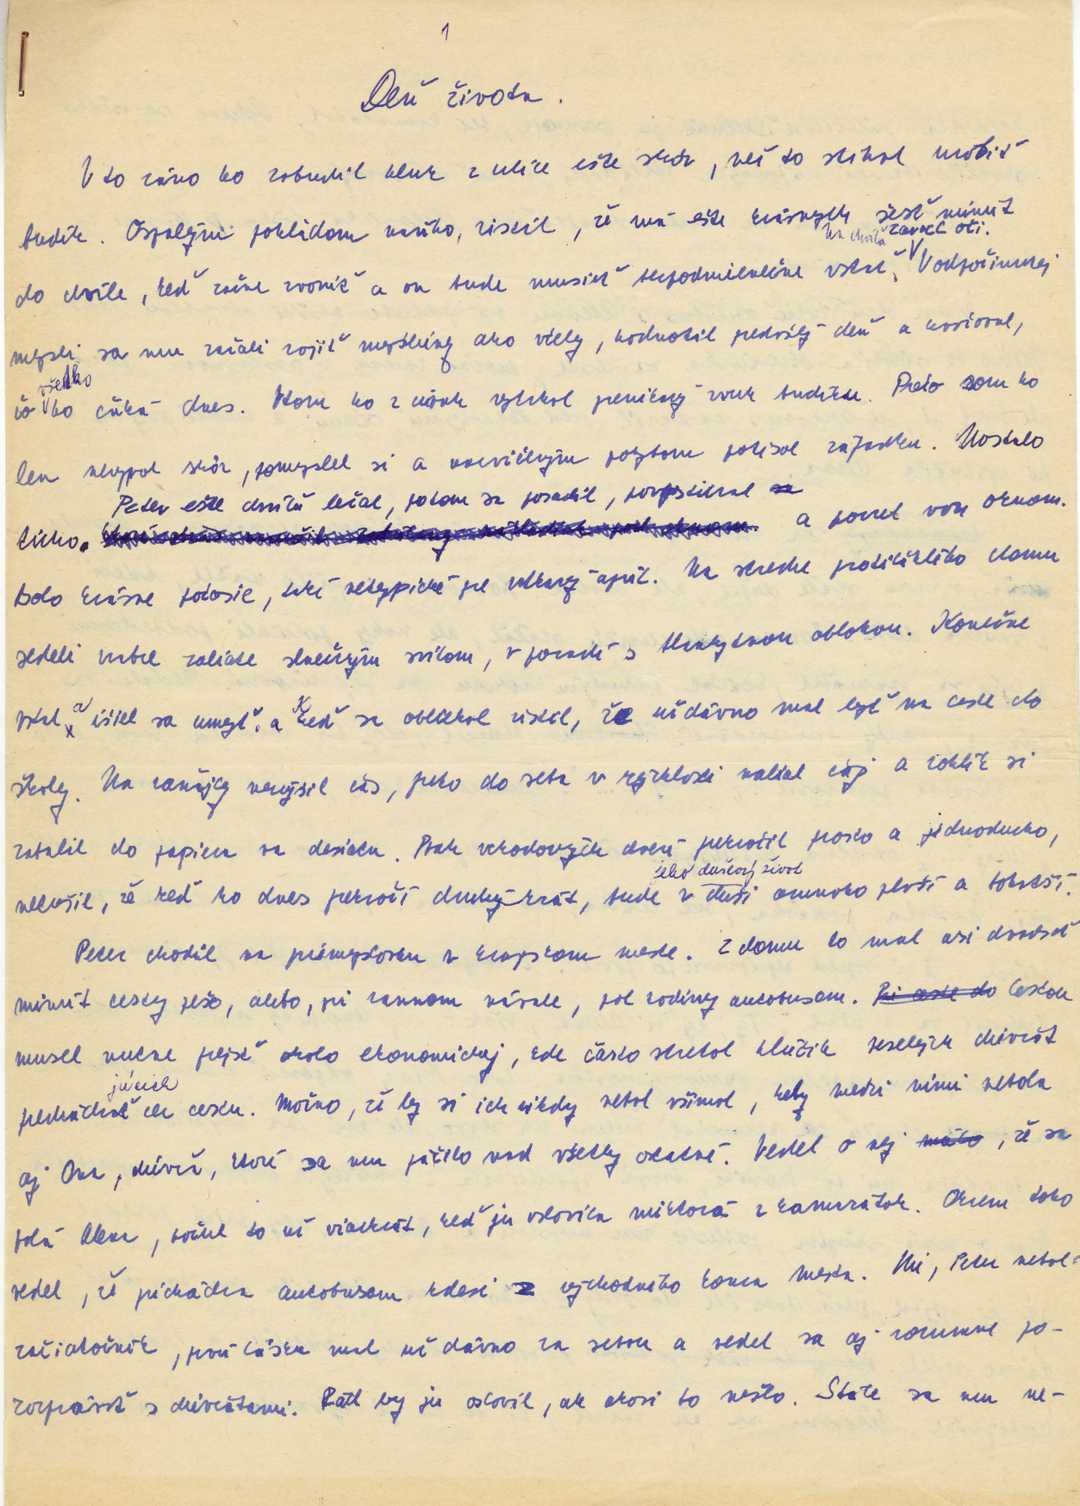 1
Deň života.
V to ráno ho zobudil hluk z ulice ešte skôr, než to stihol urobiť
budík. Ospalým pohľadom naňho, zistil, že má ešte krásnych šesť minút
na chvíľu zavrel oči.
do chvíle, keď začne zvoniť a on bude musieť bezpodmienečne vstať. V odpočinutej
mysli sa mu začali rojiť myšlienky ako včely, hodnotil predošlý deň a
všetko
čo ho čaká dnes. Zvuk budíka. Preto som ho
len skôr, pomyslel si a pohybom zápästia. Nastalo
Peter ešte chvíľu ležal, potom sa posadil,
ticho. a pozrel von oknom.
Bolo krásne počasie, také netypické pre apríl. Na streche protiľahlého domu
sedeli vrabce zaliate slnečným svitom, v pozadí s oblohou. Konečne
vstal a išiel sa umyť. a Keď sa obliekol zistil, že už dávno mal byť na ceste do
školy. Na raňajky nezvýšil čas, preto do seba v rýchlosti nalial čaj a rohlík si
zabalil do papiera na desiatu. Prah vchodových dverí prekročil prosto a jednoducho,
jeho duševný život
netušil, že keď ho dnes prekročí druhýkrát, bude v duši omnoho plnší a bohatší.
Peter chodil na priemyslovku v krajskom meste. Z domu to mal asi dvadsať
minút cesty pešo, alebo, pri rannom návale, pol hodiny autobusom. Pri ceste do Cestou
musel nutne prejsť okolo ekonomickej, kde často stretol hlúčik veselých dievčat
júcich
prechádzať cez cestu. Možno, že by si ich nikdy nebol všimol, keby medzi nimi nebola
aj Ona, dievča, ktoré sa mu páčilo nad všetky ostatné. Vedel o nej málo, že sa
volá Alena, počul to už viackrát, keď ju oslovila niektorá z kamarátok. Okrem toho
vedel, že prichádza autobusom kdesi z východného konca mesta. Nie, Peter nebol
začiatočník, prvú lásku mal už dávno za sebou a vedel sa aj rozumne po-
rozprávať s dievčatami. Rád by ju oslovil, ale akosi to nešlo. Stále sa mu ne-